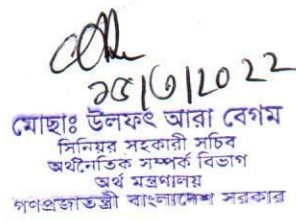 মোছাঃ উলফৎ আরা বেগম
সিনিয়র সহকারী সচিব
অর্থনৈতিক সম্পর্ক বিভাগ
অর্থ মন্ত্রণালয়
গণপ্রজাতন্ত্রী বাংলাদেশ সরকার